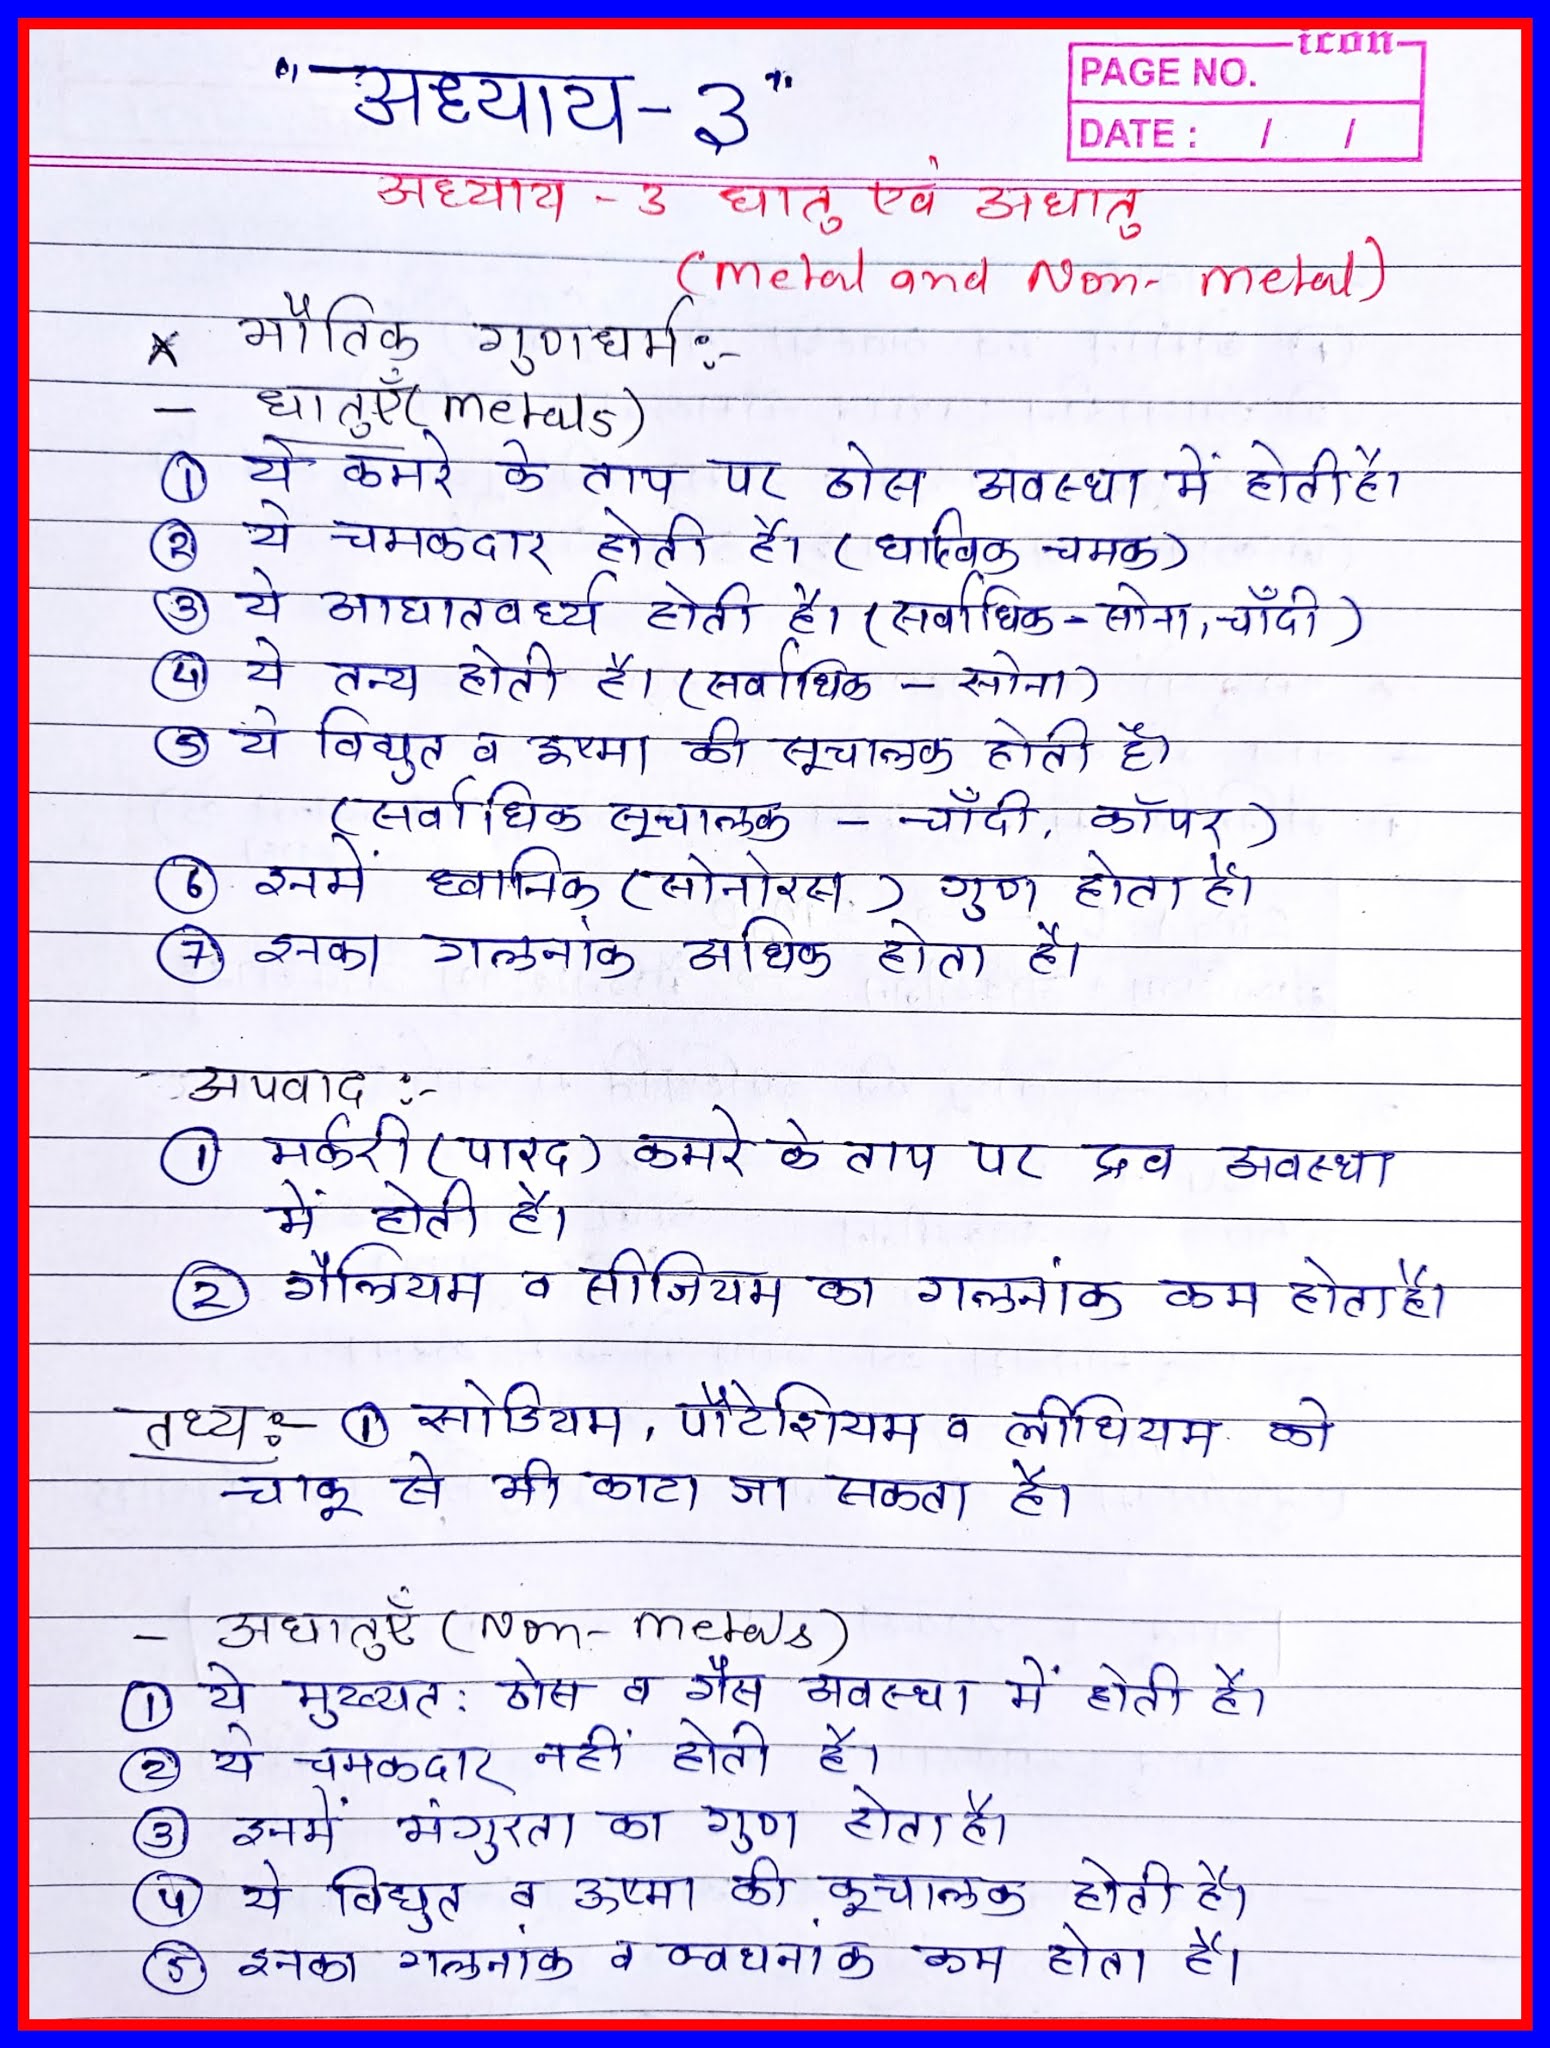 "अध्याय - 3"
icon
PAGE NO.
DATE : / /
अध्याय - 3 धातु एवं अधातु
(Metal and Non- metal)
* भौतिक गुणधर्म :-
- धातुएँ (metals)
① ये कमरे के ताप पर ठोस अवस्था में होती है।
② ये चमकदार होती है। (धात्विक चमक)
③ ये आघातवर्ध्य होती है। (सर्वाधिक - सोना, चाँदी)
④ ये तन्य होती है। (सर्वाधिक - सोना)
⑤ ये विद्युत व ऊष्मा की सूचालक होती है।
(सर्वाधिक सूचालक - चाँदी, कॉपर)
⑥ इनमें ध्वानिक (सोनोरस) गुण होता है।
⑦ इनका गलनांक अधिक होता है।
- अपवाद :-
① मर्करी (पारद) कमरे के ताप पर द्रव अवस्था
में होती है।
② गैलियम व सीजियम का गलनांक कम होता है।
तथ्य :- ① सोडियम, पौटेशियम व लीथियम को
चाकू से भी काटा जा सकता है।
- अधातुएँ (Non- metals)
① ये मुख्यत: ठोस व गैस अवस्था में होती है।
② ये चमकदार नहीं होती है।
③ इनमें भंगुरता का गुण होता है।
④ ये विद्युत व ऊष्मा की कूचालक होती है।
⑤ इनका गलनांक व क्वथनांक कम होता है।